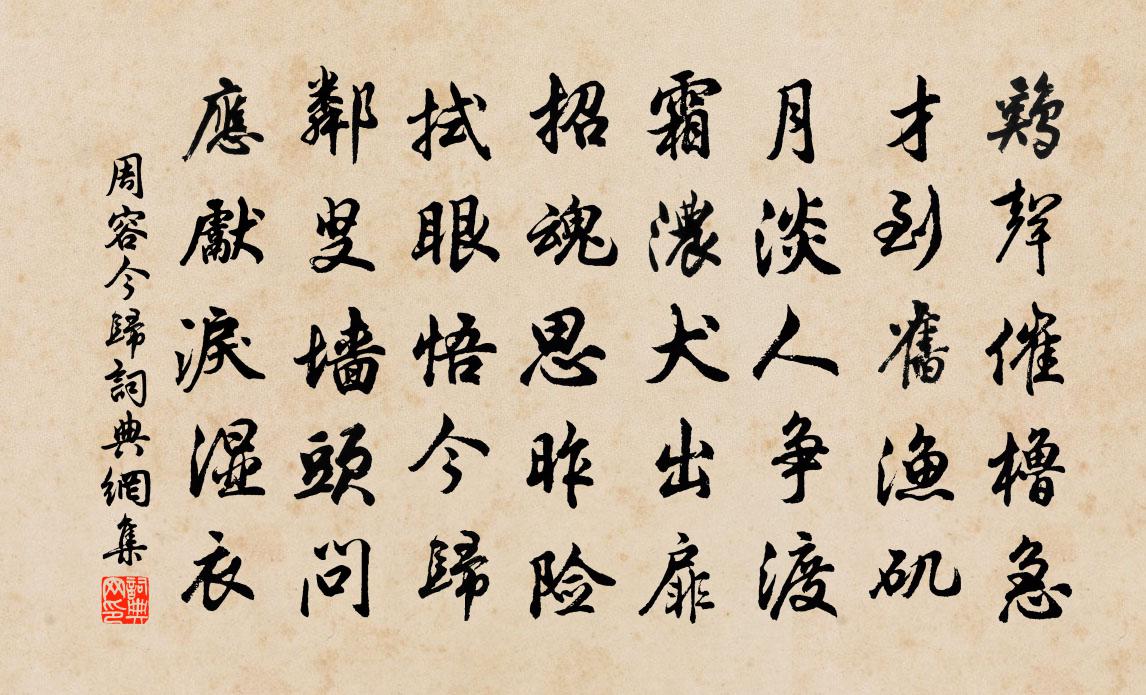 鷄聲催櫓急
才到舊漁矶
月淡人争渡
霜濃犬出扉
招魂思昨险
拭眼悟今歸
鄰叟墙頭問
應獻淚湿衣
周容今歸詞典網集
詞典网印